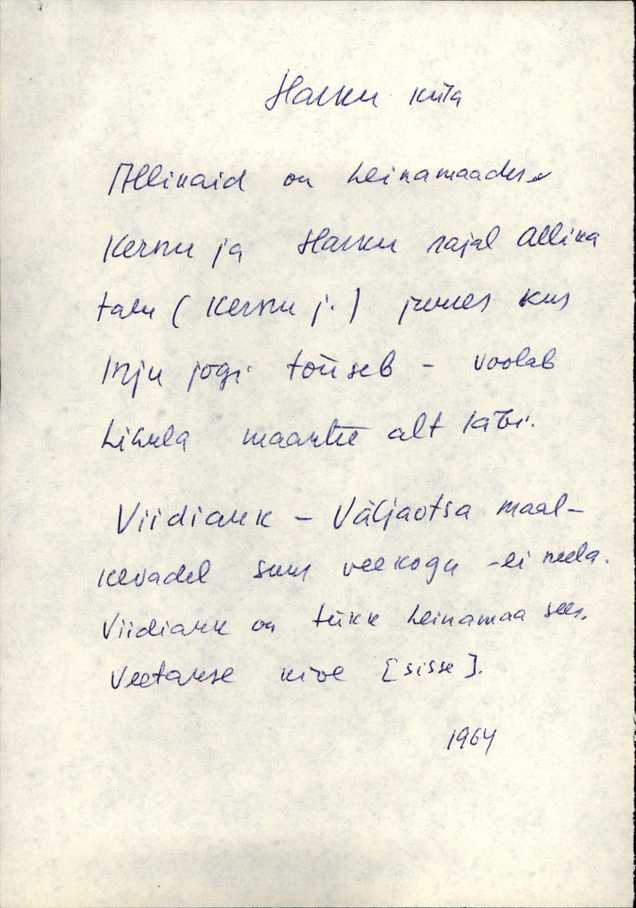 Harku küla
Allikaid on heinamaades
Kernu ja Harku rajal Allika
talu (Kernu j.) juures kus
jõgi tõuseb - voolab
maantee alt läbi.
Viidiauk - Väljaotsa maal -
kevadel suur veekogu - ei neela.
Viidiauk on tükk heinamaa sees.
Veetakse kive [sisse].
1964